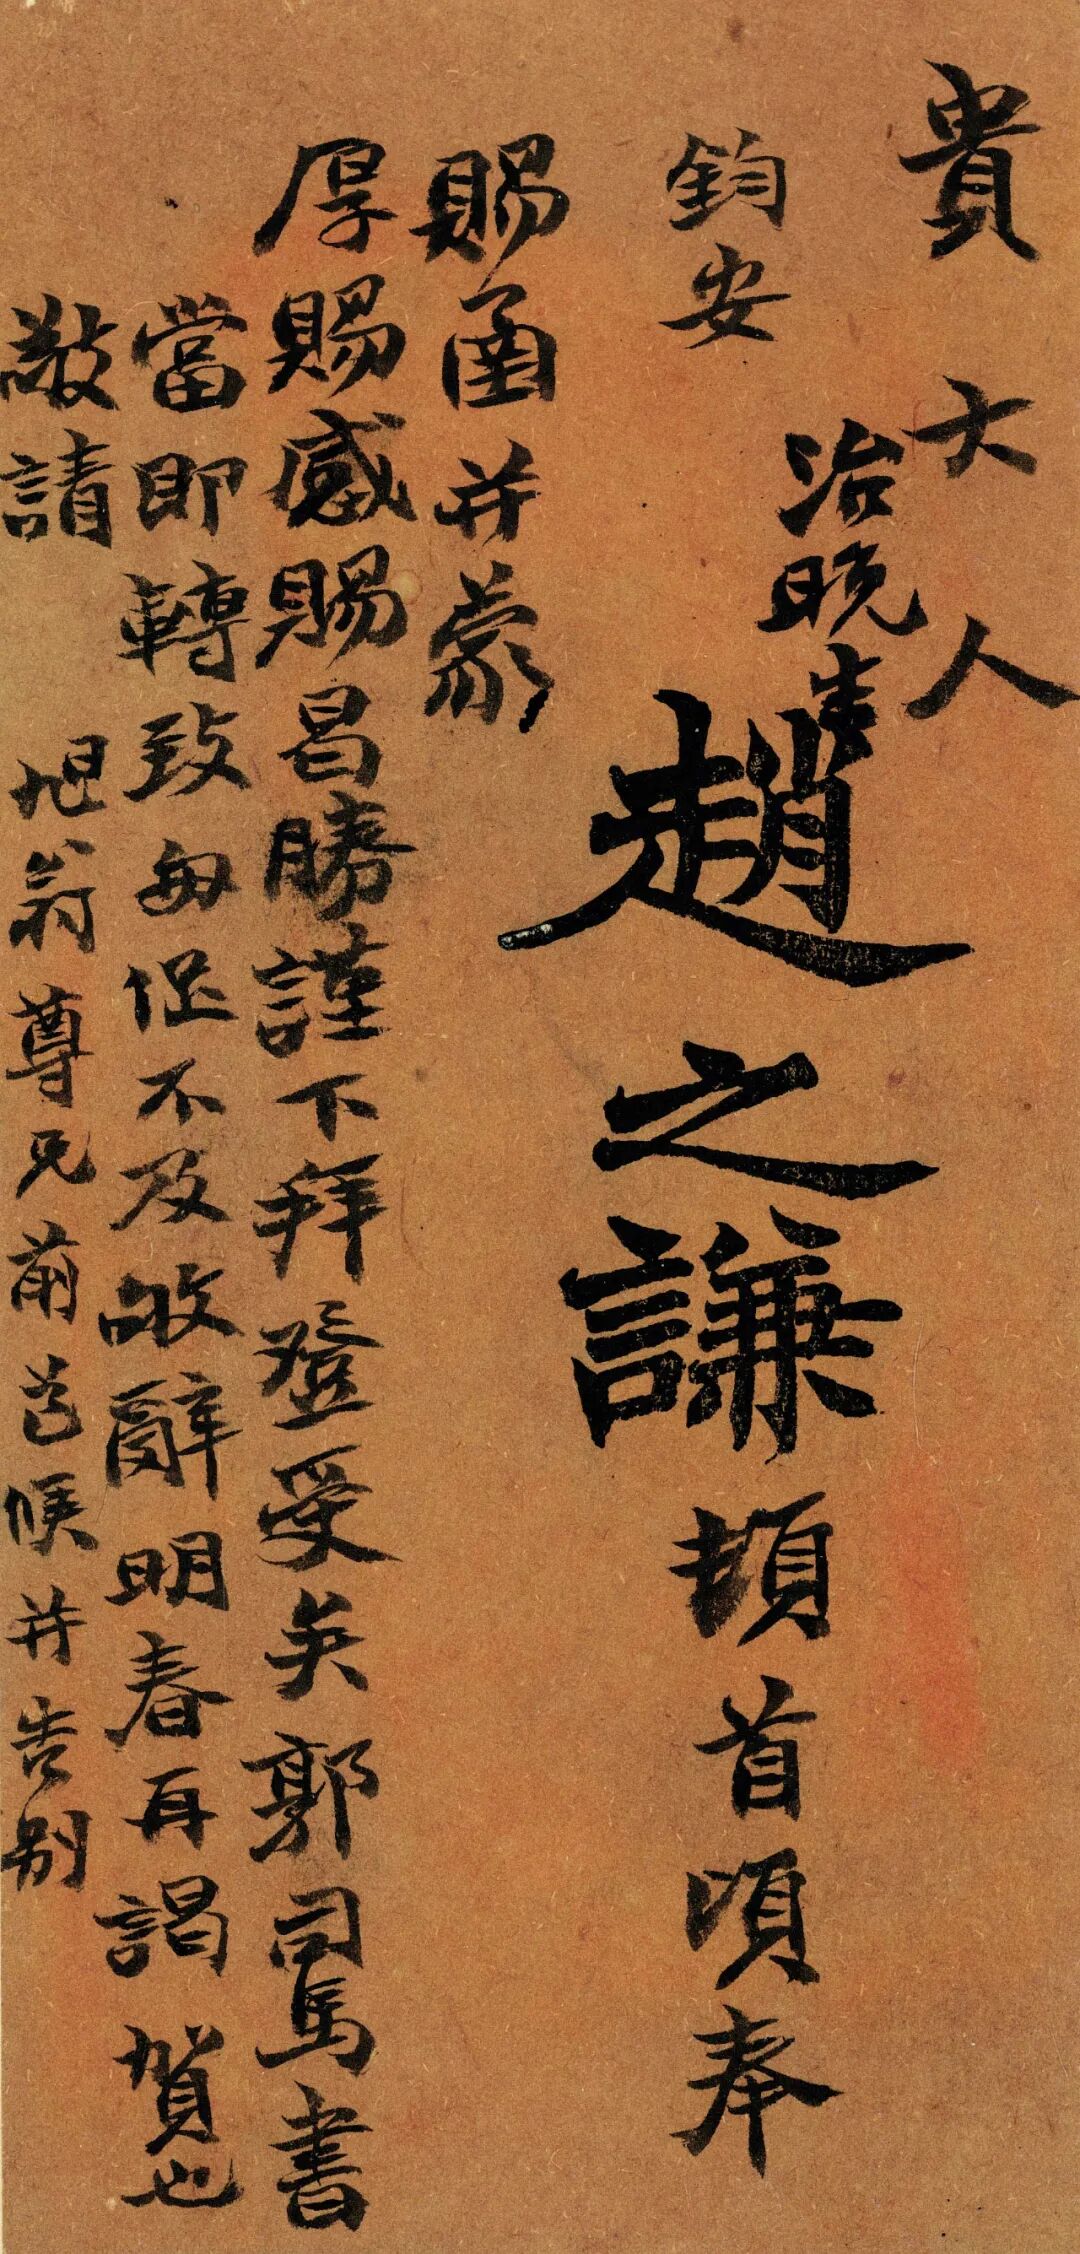 貴大人
鈞安
治晚生
趙之謙頓首頃奉
賜函并蒙
厚賜感賜昌勝謹下拜登受矣郭司馬書
當即轉致匆促不及敂辭明春再謁賀也
敬請 旭翁尊兄前道候并告別